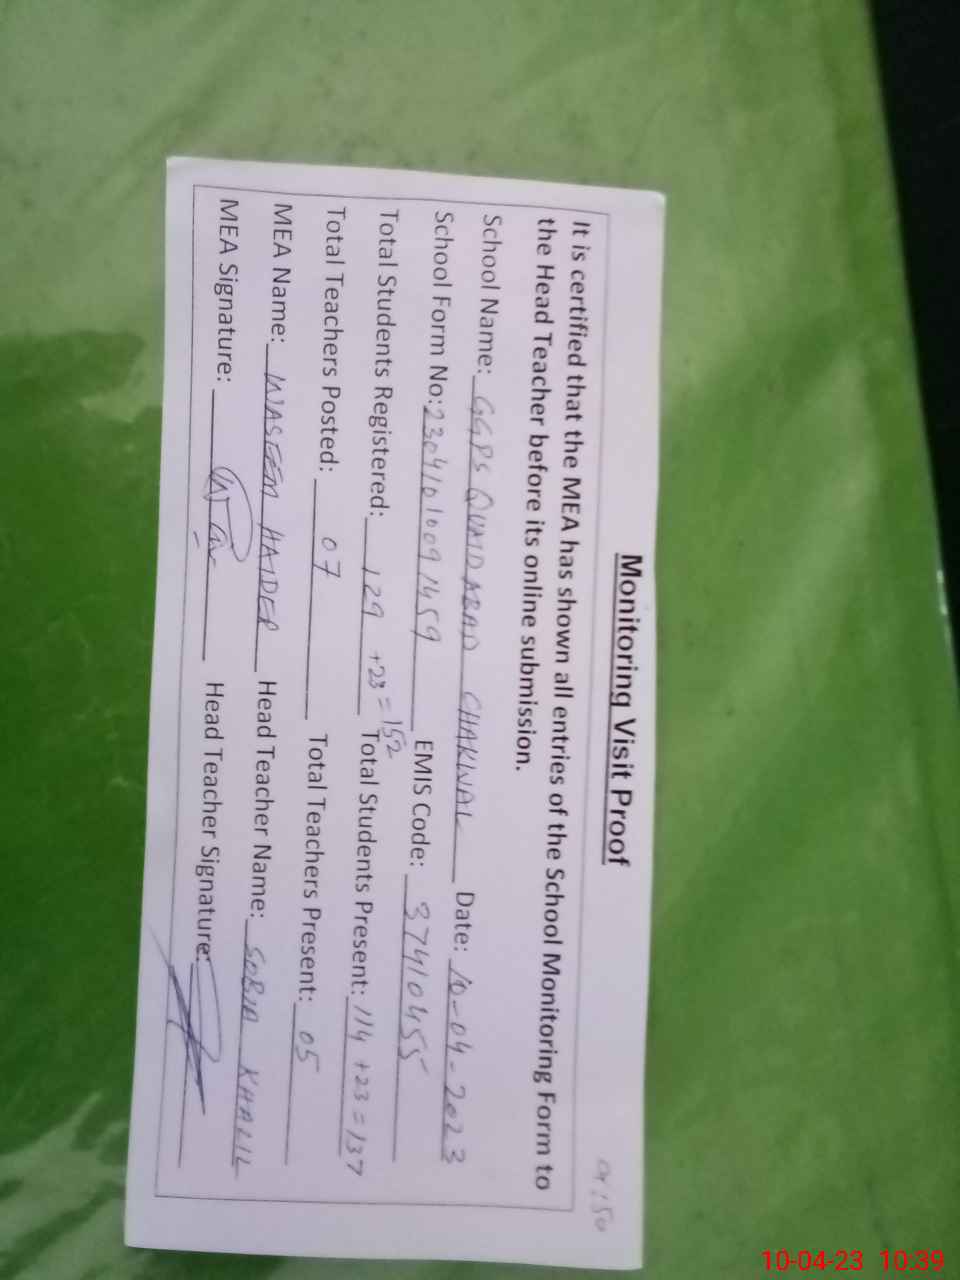 09:50
Monitoring Visit Proof
It is certified that the MEA has shown all entries of the School Monitoring Form to
the Head Teacher before its online submission.
School Name: GGPS QUAIDABAD CHAKWAL Date: 10-04-2023
School Form No: 2304101009 1459 EMIS Code: 37410455
Total Students Registered: 129 +23=152 Total Students Present: 114 +23=137
Total Teachers Posted: 07 Total Teachers Present: 05
MEA Name: WASEEM HAIDER Head Teacher Name: SOBIA KHALIL
MEA Signature: Head Teacher Signature:
10-04-23 10:39